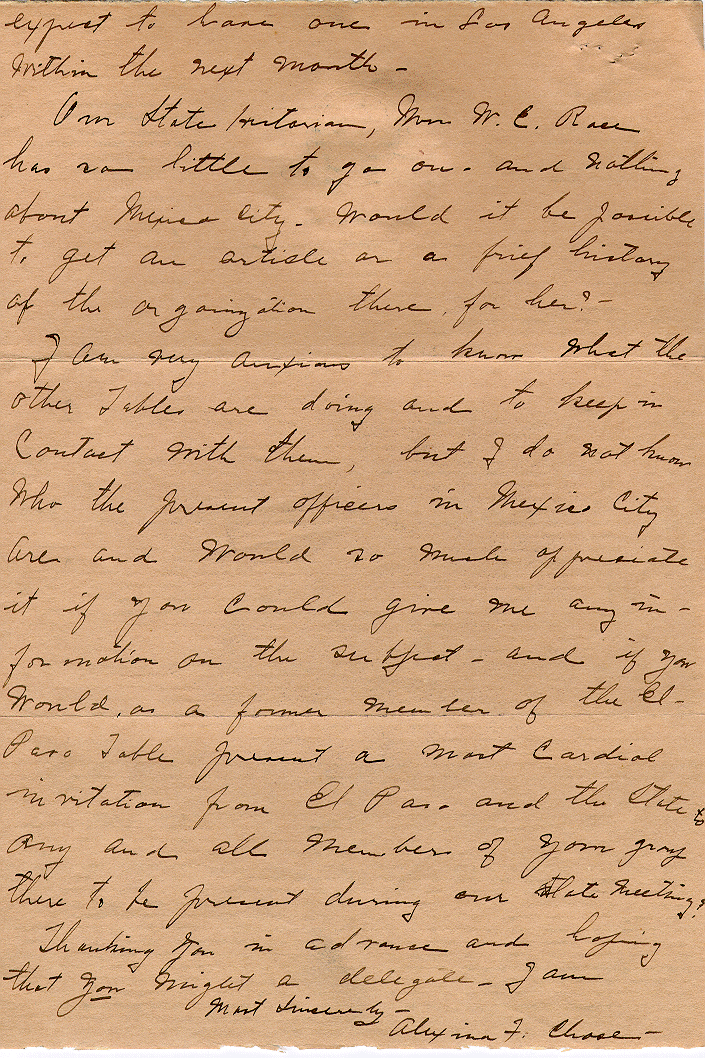 expect to have one in Los Angeles
within the next month -
Our State historian, Mrs W. E. Race
has so little to go on - and nothing
about Mexico City - Would it be possible
to get an article or a brief history
of the organization there, for her? -
I am very anxious to know what the
other Tables are doing and to keep in
contact with them, but I do not know
who the present officers in Mexico City
are and would so much appreciate
it if you could give me any in-
formation on the subject - and if you
would, as a former member of the El-
Paso Table present a most cordial
invitation from El Paso and the State to
any and all members of your group
there to be present during our State meeting?
Thanking you in advance and hoping
that you might a delegate - I am
Most Sincerely -
Alexina F. Chase -